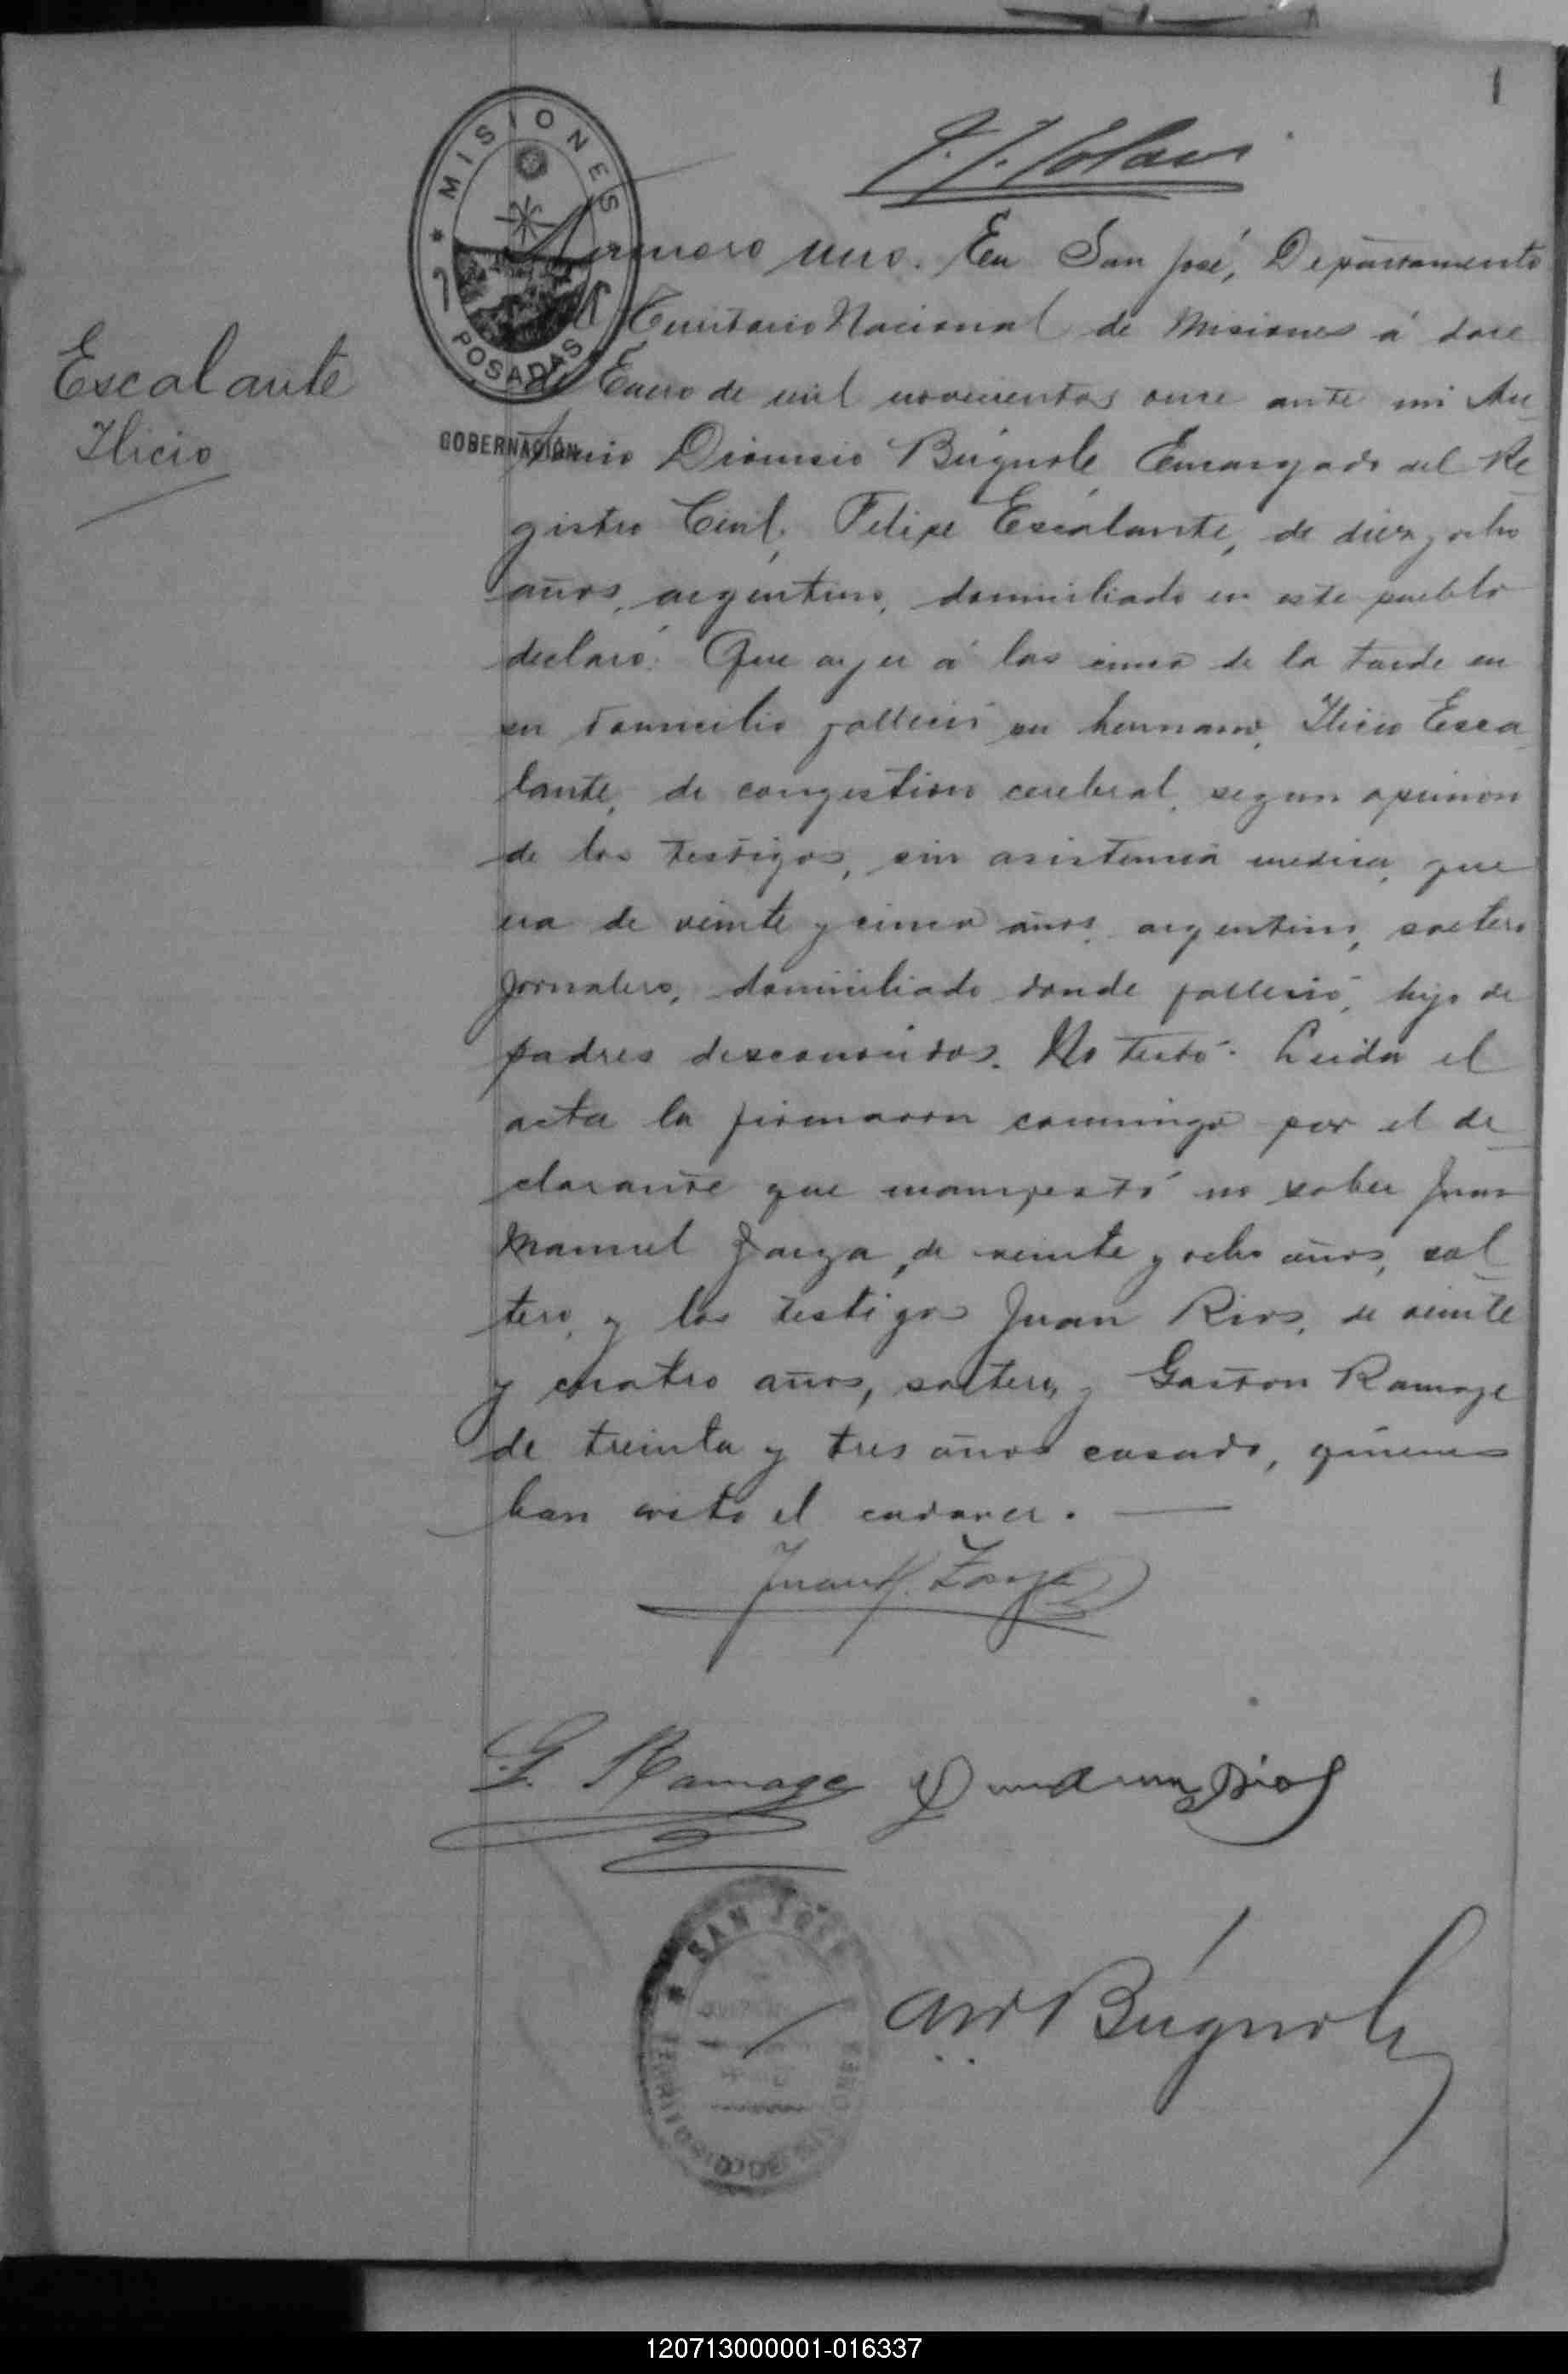 1
MISIONES
POSADAS
GOBERNACIÓN
Escalante
Ilicio
Numero uno. En San José, Departamento
del Territorio Nacional de Misiones á doce
de Enero de mil novecientos once ante mi An-
tonio Dionisio Búgnole, Encargado del Re-
gistro Civil, Felipe Escalante, de diez y ocho
años, argentino, domiciliado en este pueblo
declaró: Que ayer á las cinco de la tarde en
su domicilio falleció su hermano, Ilicio Esca-
lante, de congestion cerebral, segun opinion
de los testigos, sin asistencia medica, que
era de veinte y cinco años, argentino, soltero
jornalero, domiciliado donde falleció, hijo de
padres desconocidos. No testó. Leida el
acta la firmaron conmigo por el de-
clarante que manifestó no saber Juan
Manuel Zarza, de veinte y ocho años, sol-
tero, y los testigos Juan Rios, de veinte
y cuatro años, soltero, y Gaston Ramage
de treinta y tres años casado, quienes
han visto el cadaver.
Juan M. Zarza
G. Ramage
Rios
SAN JOSÉ
TERRITORIO DE MISIONES
Ant D Búgnole
120713000001-016337